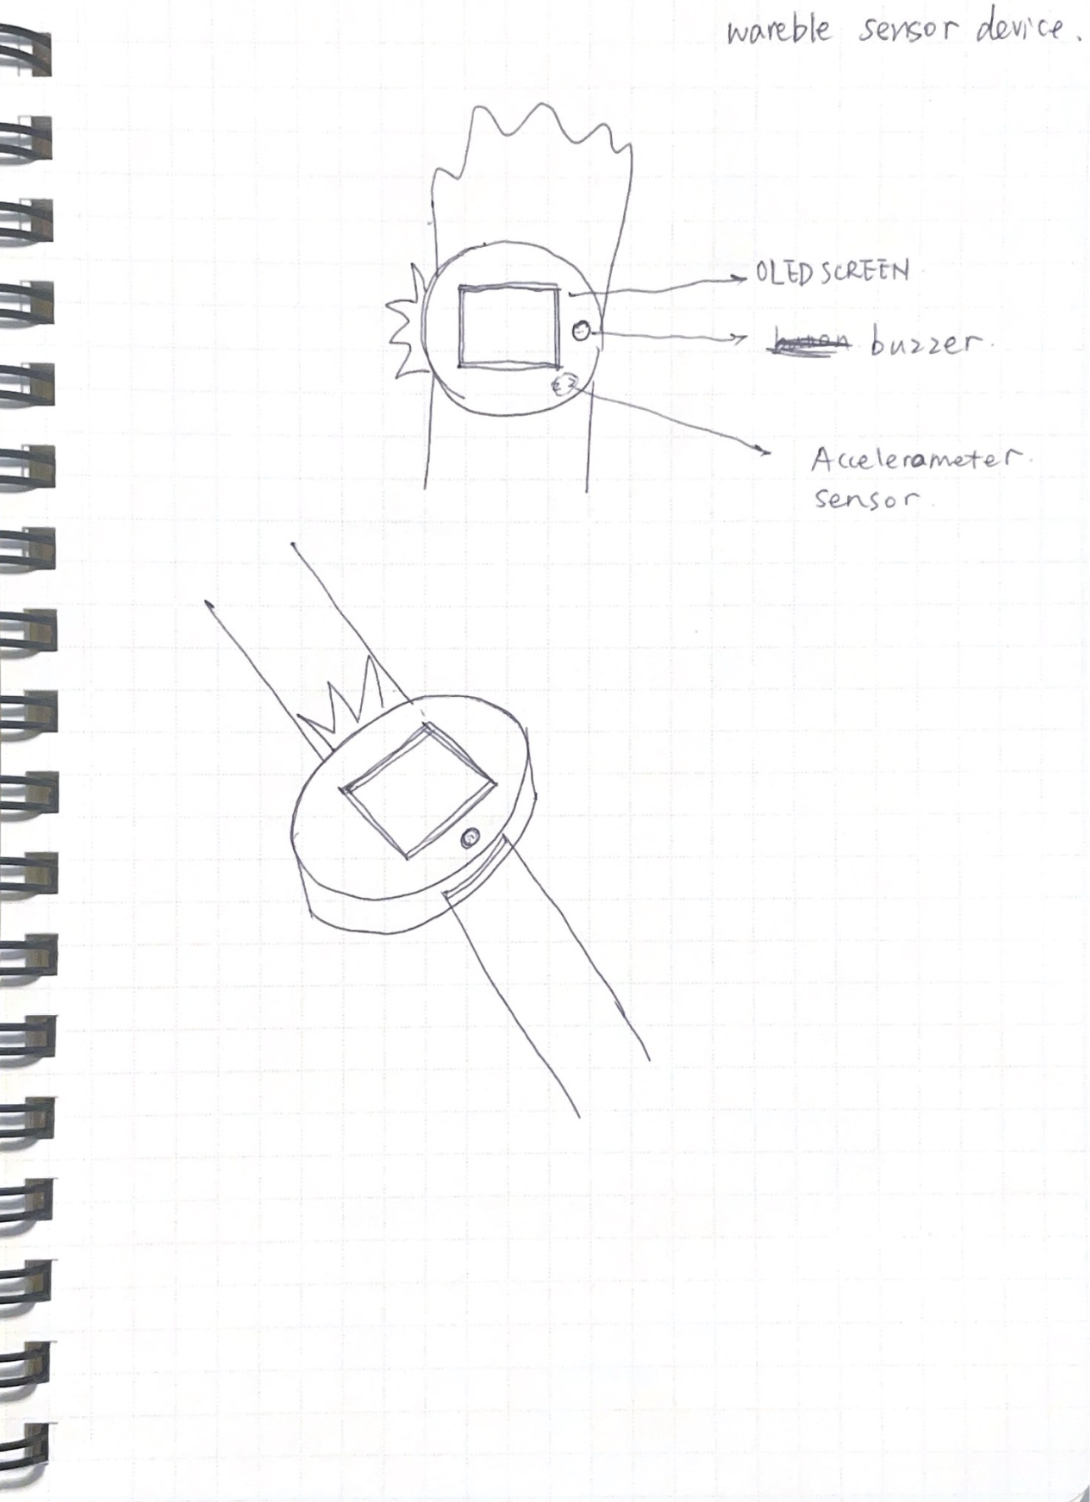 wareble sensor device.
OLED SCREEN
buzzer.
Accelerameter.
sensor.